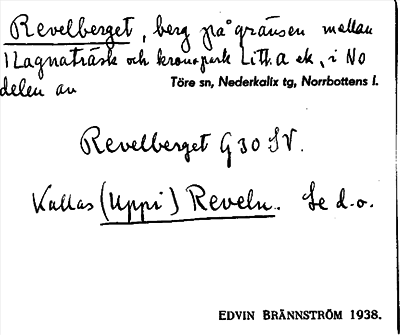 Revelberget, berg på gränsen mellan
Lagnaträsk och kronopark Litt. A ek, i No
delen av
Töre sn, Nederkalix tg, Norrbottens l.
Revelberget G 30 SV.
Kallas (Uppi) Reveln. Se d.o.
EDVIN BRÄNNSTRÖM 1938.